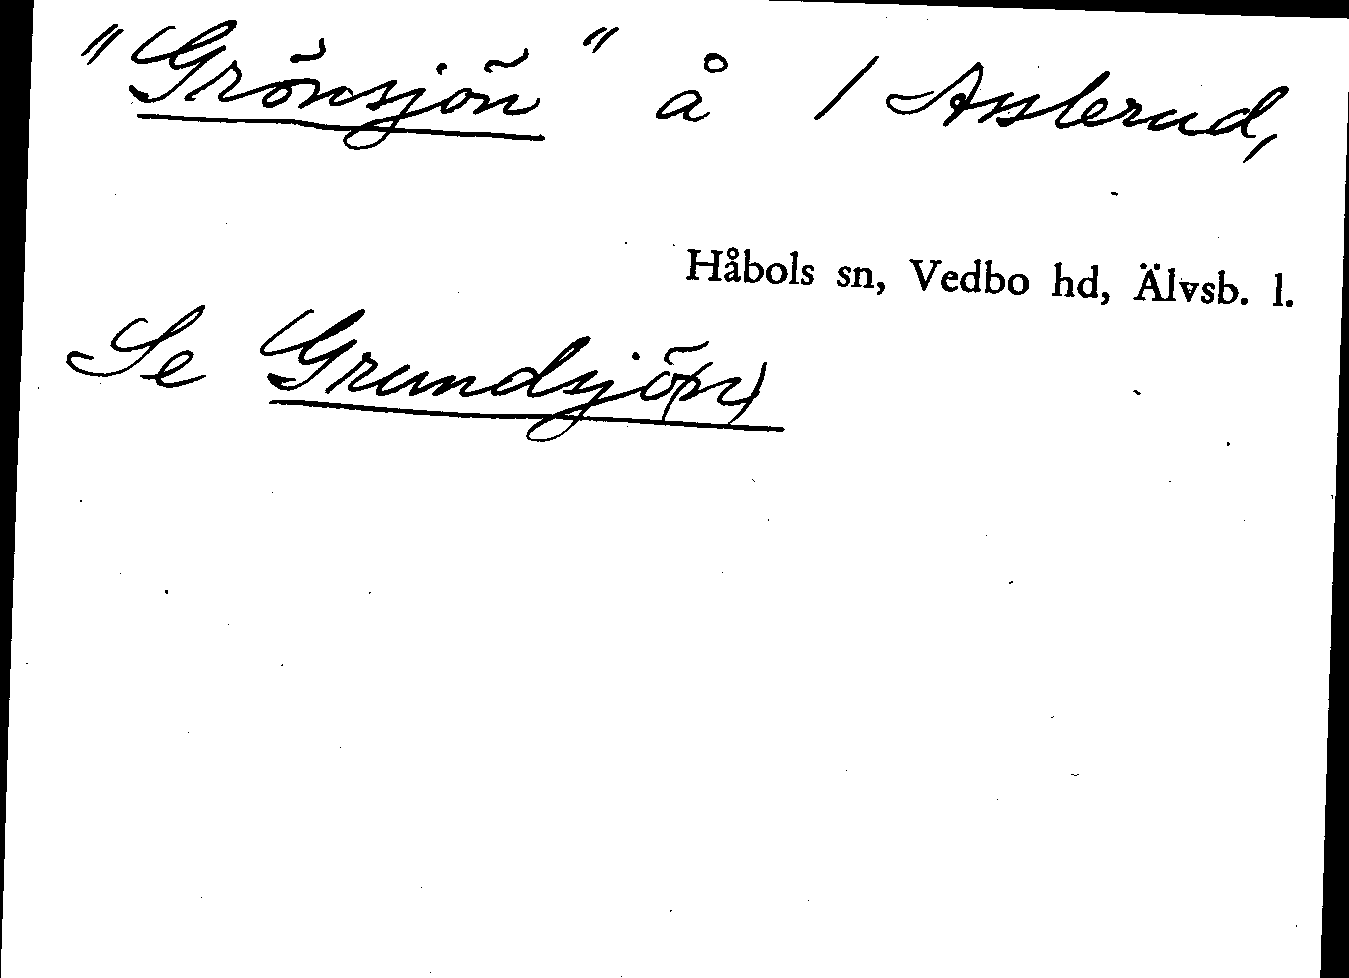 "Grönsjön" å 1 Asslerud,
Håbols sn, Vedbo hd, Älvsb. l.
Se Grundsjö(n)